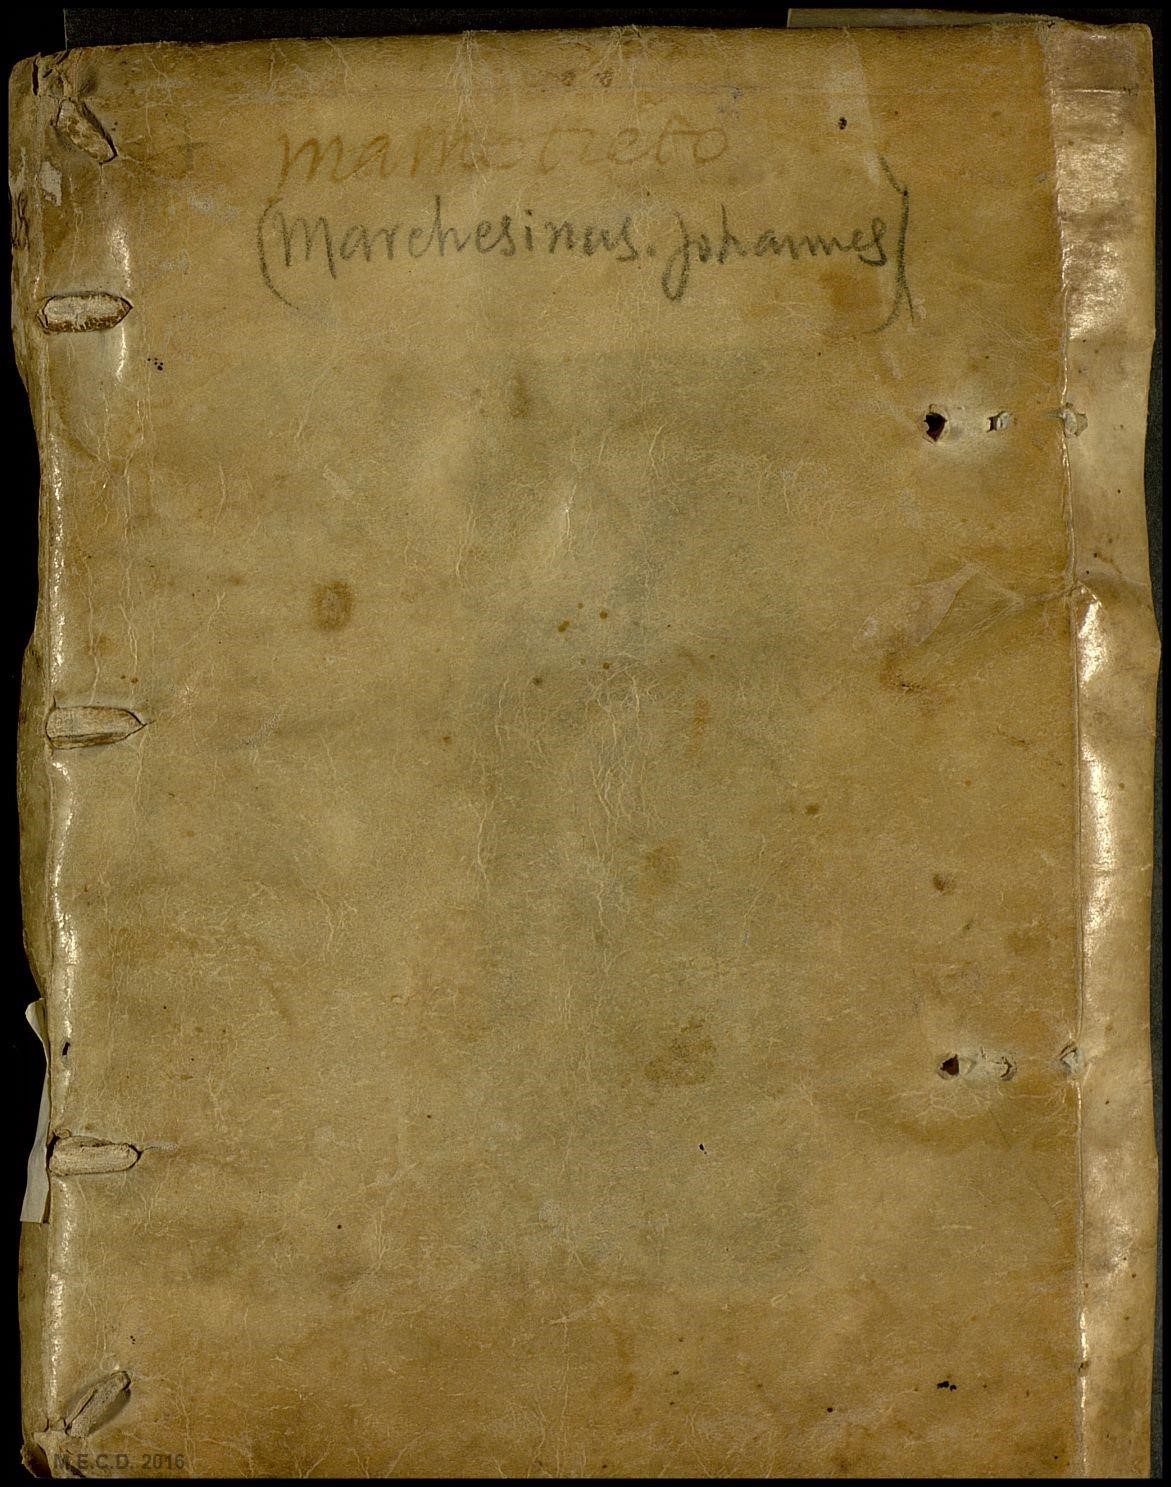 mamotreto
(Marchesinus. Johannes)
M.E.C.D. 2016